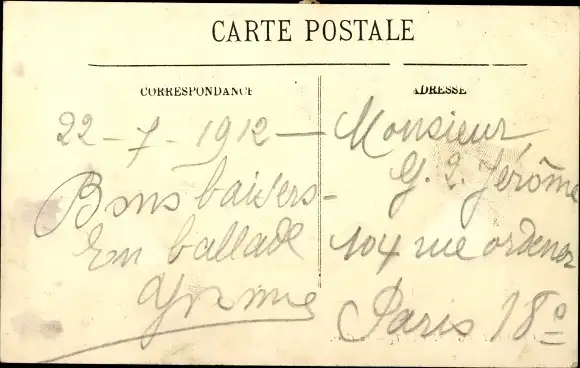 CARTE POSTALE
CORRESPONDANCE
22 - 7 - 1912 -
Bons baisers -
En ballade
ADRESSE
Monsieur
G. Jérôme
104 rue ordener
Paris 18e